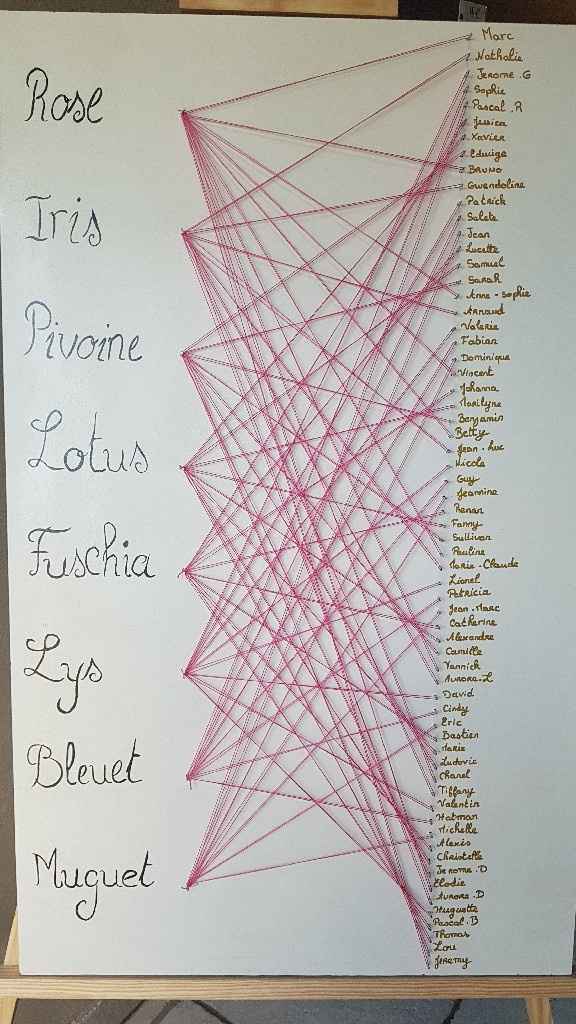 Rose
Iris
Pivoine
Lotus
Fuschia
Lys
Bleuet
Muguet
Marc
Nathalie
Jerome.G
Sophie
Pascal.R
Jessica
Xavier
Edwige
Bruno
Gwendoline
Patrick
Salete
Jean
Lucette
Samuel
Sarah
Anne-Sophie
Arnaud
Valerie
Fabian
Dominique
Vincent
Johanna
Marilyne
Benjamin
Betty
Jean-Luc
Nicole
Guy
Jeannine
Renan
Fanny
Sullivan
Pauline
Marie-Claude
Lionel
Patricia
Jean-Marc
Catherine
Alexandre
Camille
Yannick
Aurore.L
David
Cindy
Eric
Bastien
Marie
Ludovic
Chanel
Tiffany
Valentin
Hatman
Michelle
Alexis
Christelle
Jerome.D
Elodie
Aurore.D
Huguette
Pascal.B
Thomas
Lou
Jeremy